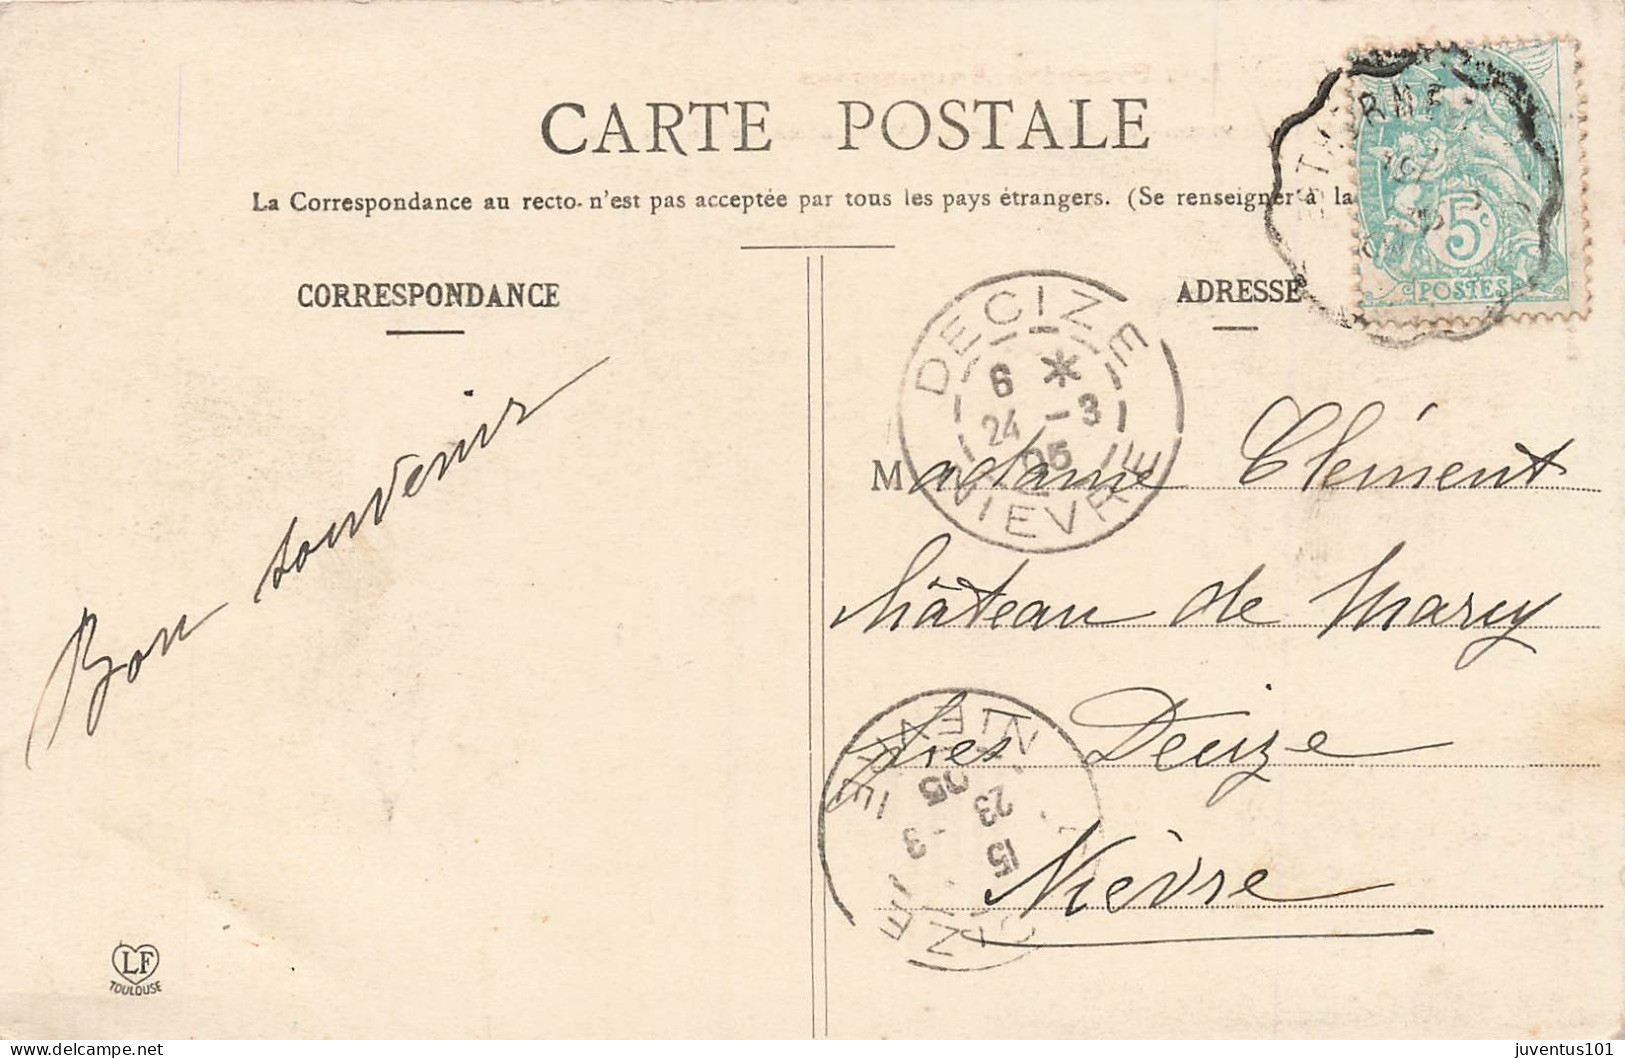 CARTE POSTALE
La Correspondance au recto n'est pas acceptée par tous les pays étrangers. (Se renseigner à la
CORRESPONDANCE
ADRESSE
5c
POSTES
DECIZE
6 *
24 - 3
05
NIEVRE
Bon souvenir
Madame Clément
Château de Marcy
près Decize
Nièvre
NIEVRE
15
23 - 3
05
LF
TOULOUSE
juventus101